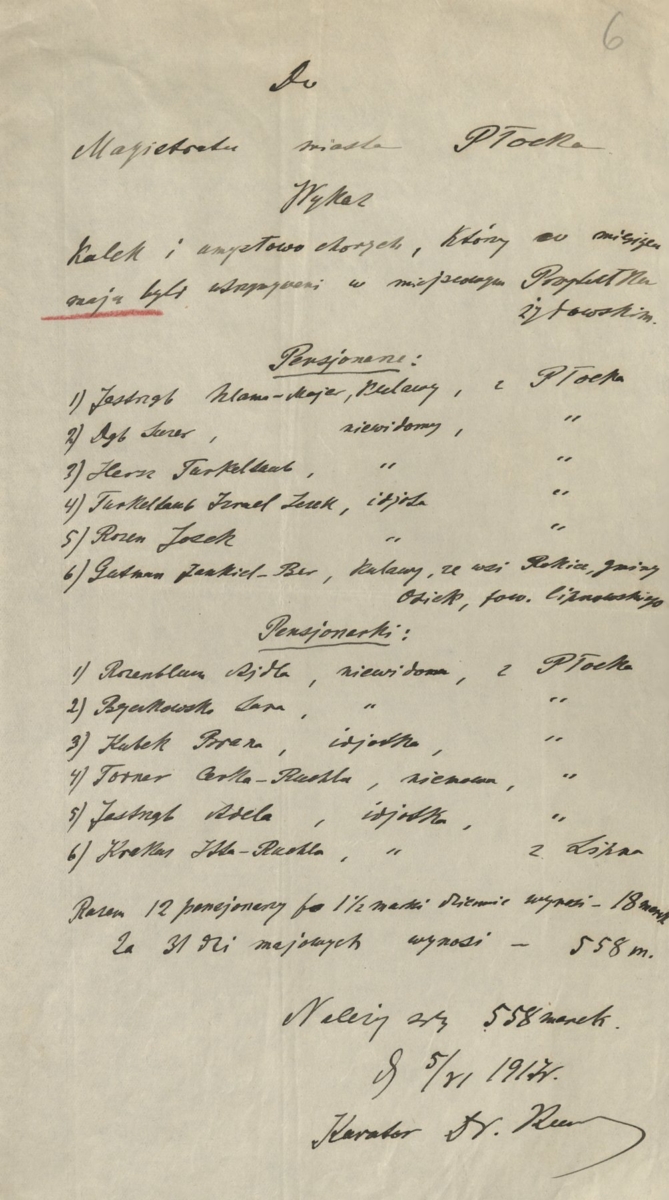 6
Do
Magistratu miasta Płocka
Wykaz
Kalek i umysłowo chorych, którzy w miesiącu
maju byli utrzymywani w miejscowym Przytułku
żydowskim.
Pensjonarze:
1) Jastrząb Szlama-Majer, kulawy, z Płocka
2) Dąb Luzer, niewidomy, "
3) Hersz Turkeltaub, " "
4) Turkeltaub Izrael Icek, idjota "
5) Rozen Josek " "
6) Gutman Jankiel-Ber, kulawy, ze wsi Rokice, gminy
Osiek, pow. Lipnowskiego
Pensjonarki:
1) Rozenblum Ajdla, niewidoma, z Płocka
2) Bęczkowska Sara, " "
3) Kubek Brana, idjotka, "
4) Torner Cerka-Ruchla, niemowa, "
5) Jastrząb Adela, idjotka, "
6) Krakus Itta-Ruchla, " z Lipna
Razem 12 pensjonarzy po 1½ marki dziennie wynosi – 18 marek
Za 31 dni majowych wynosi – 558 m.
Należy się 558 marek.
D 5/VI 1917r.
Kurator Dr.